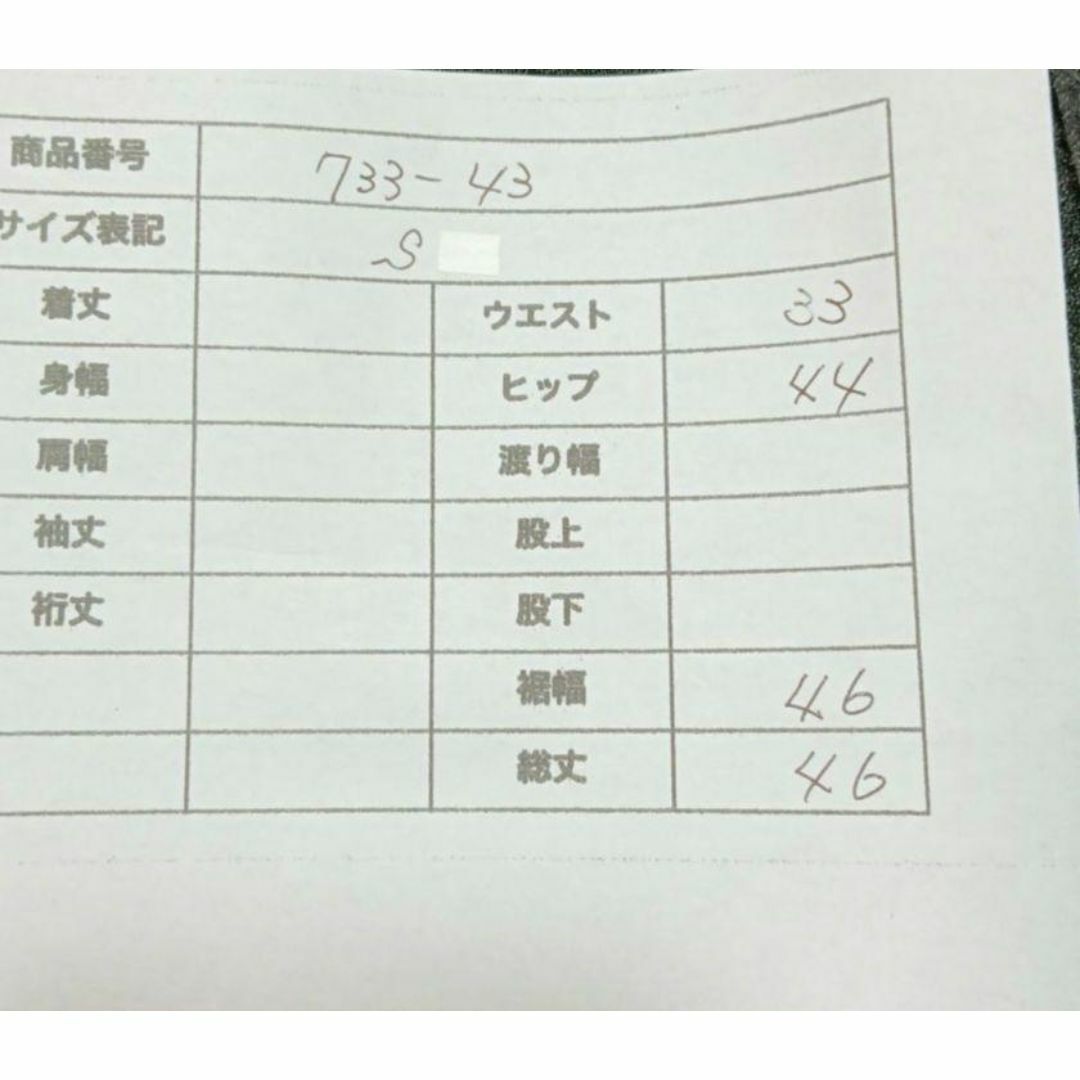 商品番号 733-43
サイズ表記 S
着丈 ウエスト 33
身幅 ヒップ 44
肩幅 渡り幅
袖丈 股上
裄丈 股下
裾幅 46
総丈 46